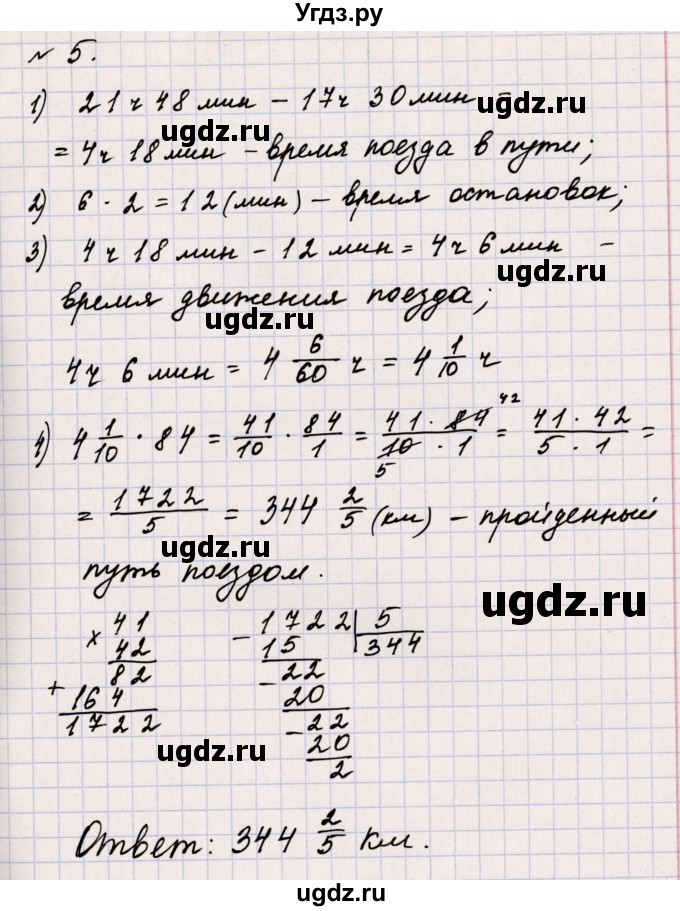 Угдз.ру
№ 5.
1) 21 ч 48 мин - 17 ч 30 мин =
ugdz.ru ugdz.ru
= 4 ч 18 мин - время поезда в пути;
2) 6 · 2 = 12 (мин) - время остановок;
3) 4 ч 18 мин - 12 мин = 4 ч 6 мин -
ugdz.ru
время движения поезда;
ugdz.ru
4 ч 6 мин = 4 6/60 ч = 4 1/10 ч
4) 4 1/10 · 84 = 41/10 · 84/1 = 41 · 84/10 · 1 = 41 · 42/5 · 1 =
42
5
= 1722/5 = 344 2/5 (км) - пройденный
ugdz.ru
путь поездом.
ugdz.ru
× 41
42
82
+ 164
1722
- 1722 | 5
15 344
- 22
20
- 22
20
2
ugdz.ru ugdz.ru
Ответ: 344 2/5 км.
ugdz.ru